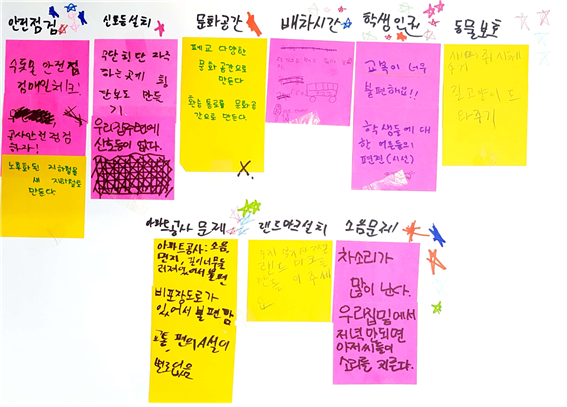 안전점검
수돗물 안전점
검매일체크!
공사안전점검
하자!
노후화된 지하철을
새 지하철로
만든다.
신호등설치
무단횡단 자주
하는곳에 횡
단보도 만들
기
우리집주변에
신호등이 없다.
문화공간
폐교 다양한
문화공간으로
만든다
환승통로를 문화공
간으로 만든다.
배차시간
학생인권
교복이 너무
불편해요!!
학생들에 대
한 어른들의
편견(시선)
동물보호
길고양이 도
와주기
아파트공사 문제
아파트공사: 소음,
먼지,
불편
비포장도로가
있어서 불편함
교통, 편의시설이
별로없음
랜드마크설치
랜드마크를
소음문제
차소리가
많이 난다.
우리집밑에서
저녁만되면
아저씨들이
소리를 지른다.